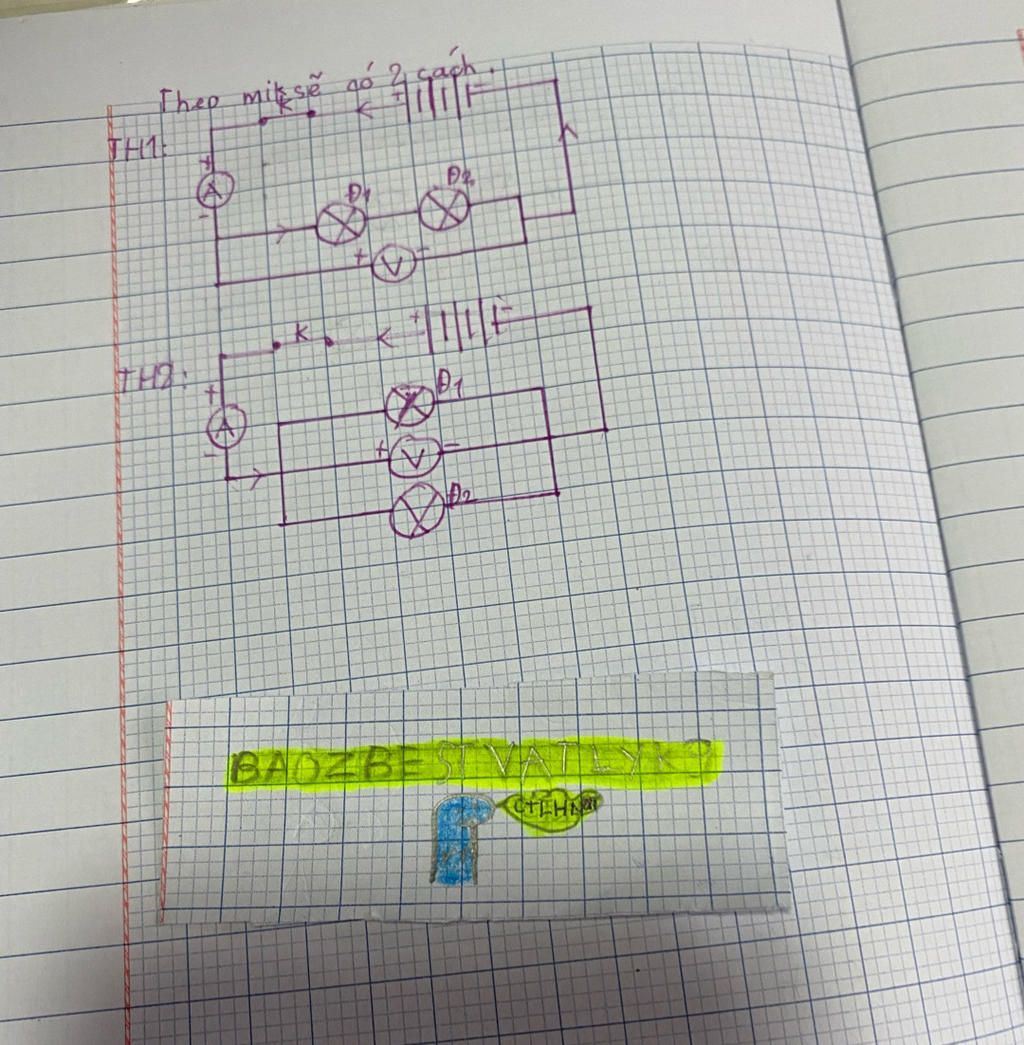 Theo mik sẽ có 2 cách.
K
+ -
TH1:
+
A
-
Đ1
Đ2
+ V -
K
+ -
TH2:
+
A
-
Đ1
+ V -
Đ2
BAOZBESTVATLYK9